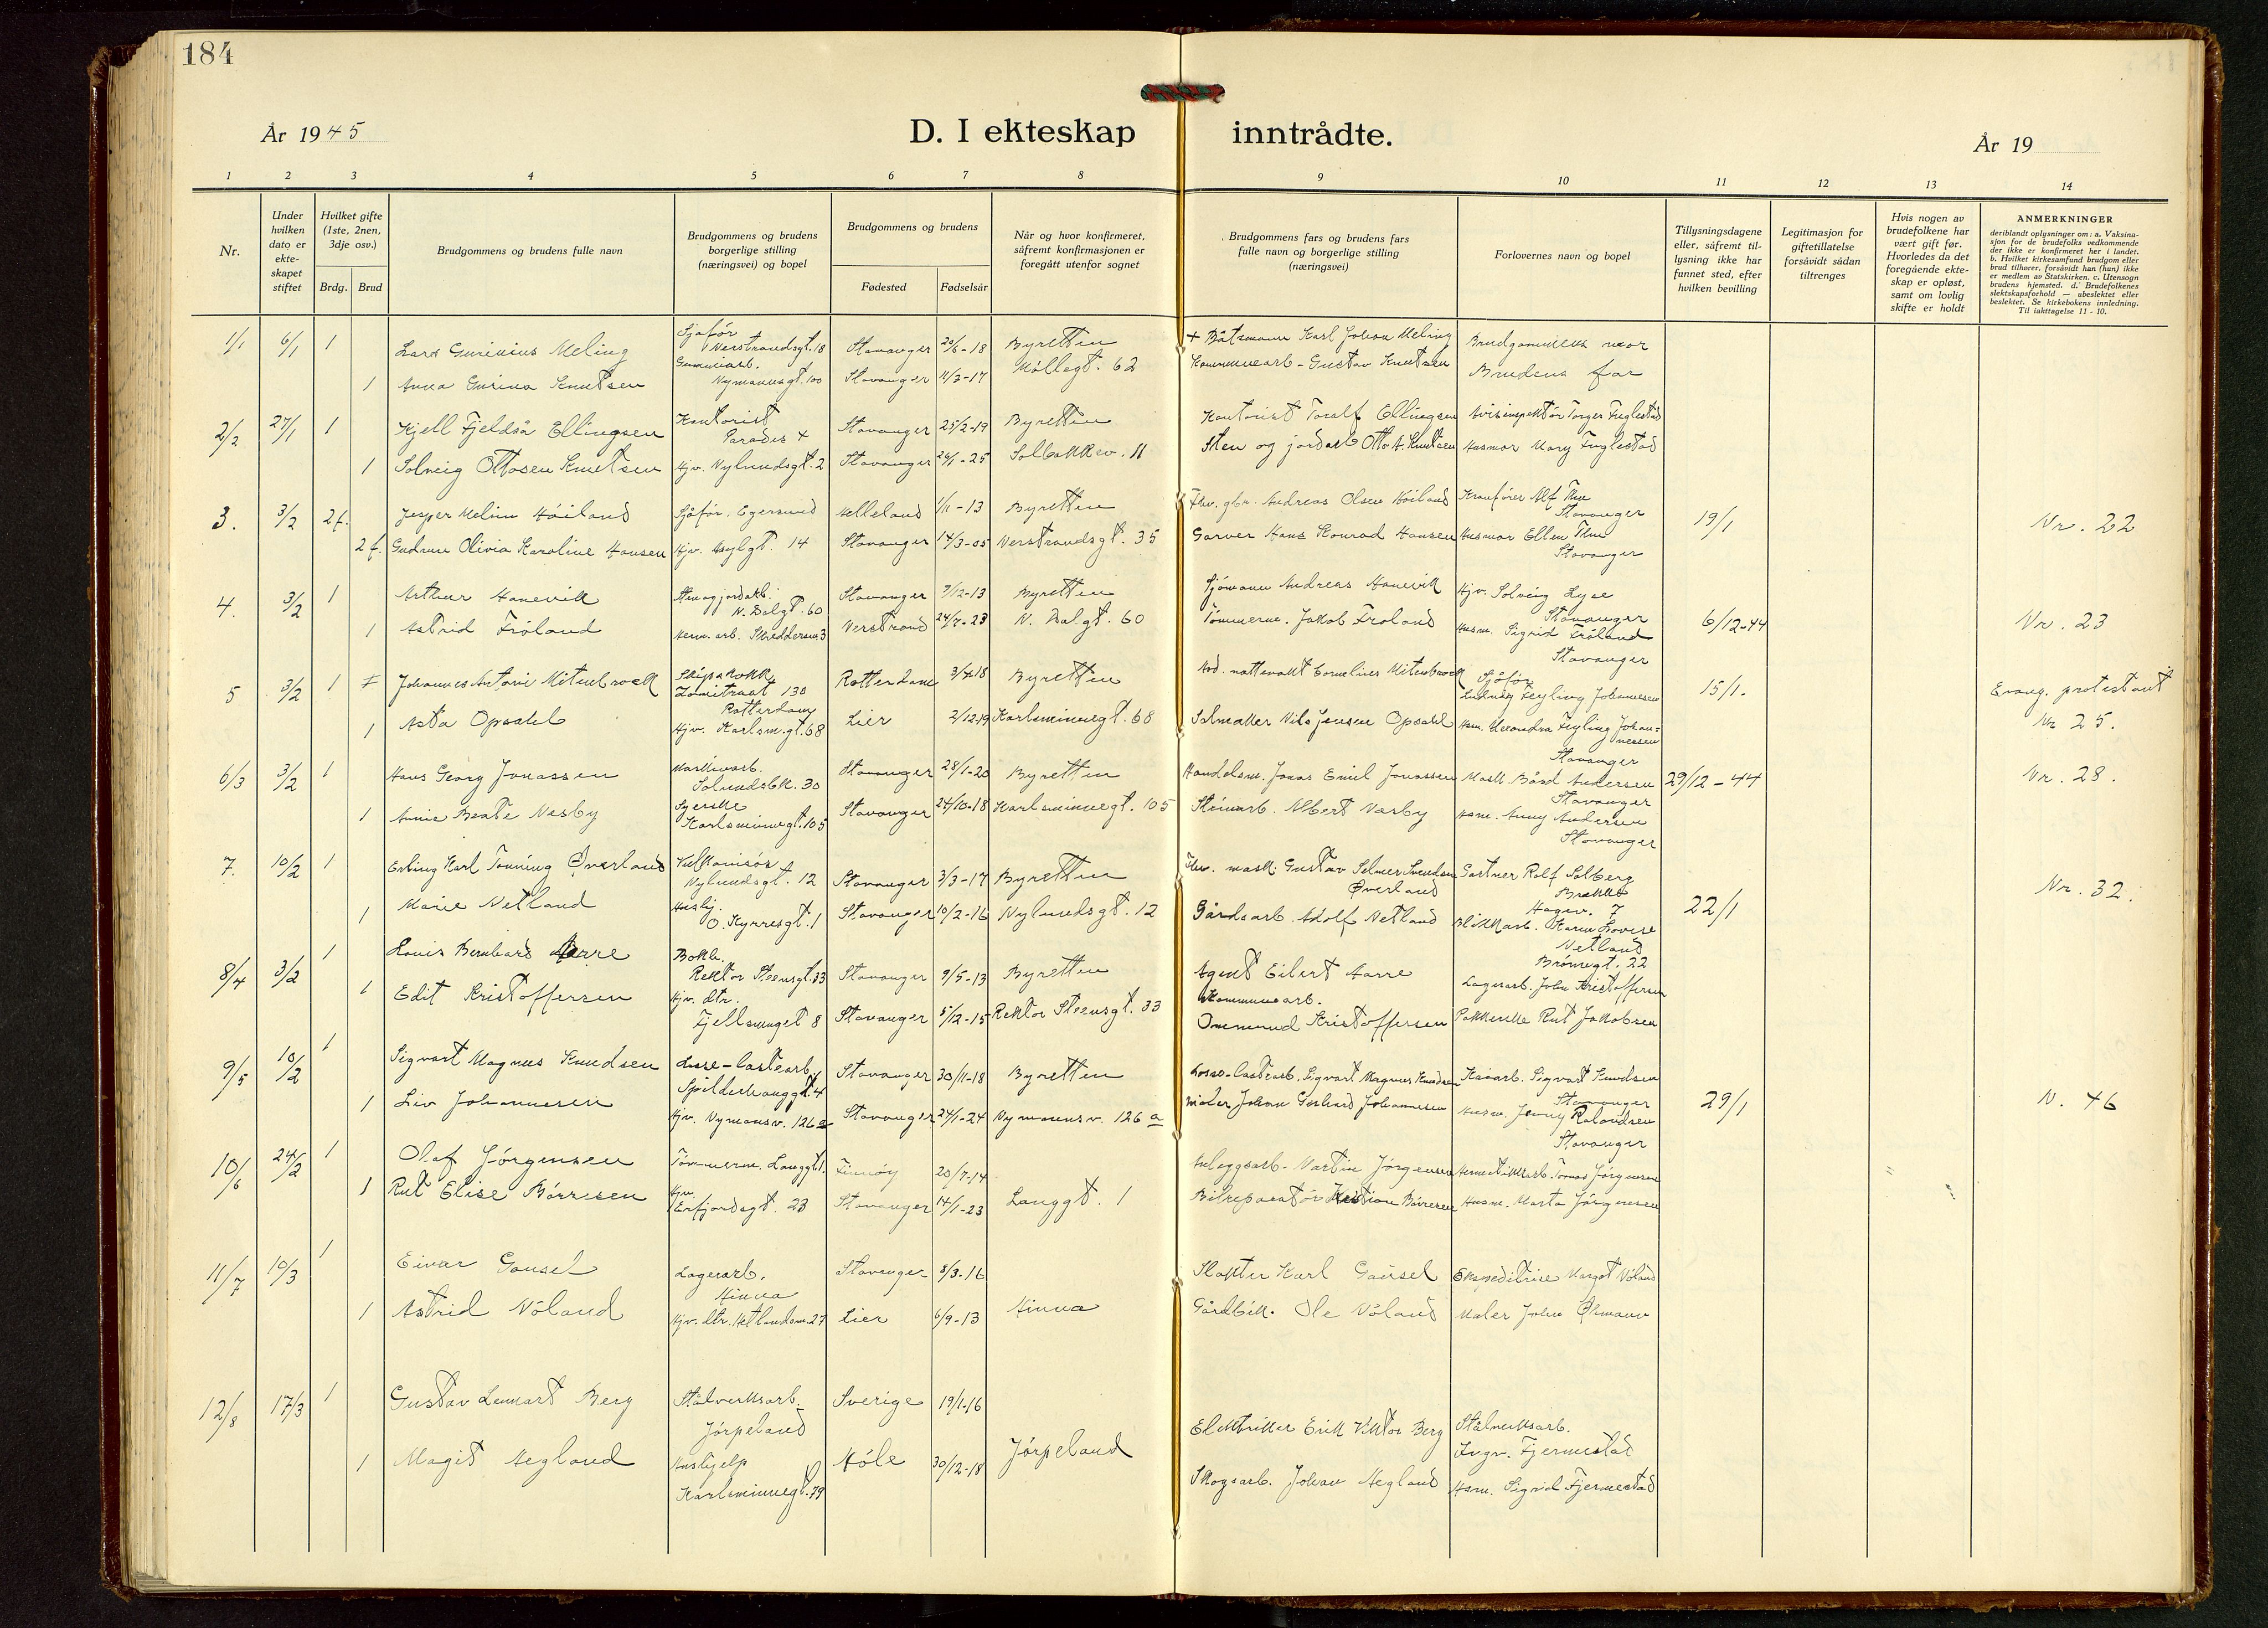 184
År 1945
D. I ekteskap inntrådte.
År 19
1 2 3 4 5 6 7 8 9 10 11 12 13 14
Nr.
Under hvilken dato er ekte-skapet stiftet
Hvilket gifte (1ste, 2nen, 3dje osv.)
Brdg. Brud
Brudgommens og brudens fulle navn
Brudgommens og brudens borgerlige stilling (næringsvei) og bopel
Brudgommens og brudens
Fødested Fødselsår
Når og hvor konfirmeret, såfremt konfirmasjonen er foregått utenfor sognet
Brudgommens fars og brudens fars fulle navn og borgerlige stilling (næringsvei)
Forlovernes navn og bopel
Tillysningsdagene eller, såfremt tillysning ikke har funnet sted, efter hvilken bevilling
Legitimasjon for giftetillatelse forsåvidt sådan tiltrenges
Hvis nogen av brudefolkene har vært gift før. Hvorledes da det foregående ekteskap er opløst, samt om lovlig skifte er holdt
ANMERKNINGER
deriblandt oplysninger om: a. Vaksinasjon for de brudefolks vedkommende der ikke er konfirmeret her i landet. b. Hvilket kirkesamfund brudgom eller brud tilhører, forsåvidt han (hun) ikke er medlem av Statskirken. c. Utensogn brudens hjemsted. d. Brudefolkenes slektskapsforhold — ubeslektet eller beslektet. Se kirkebokens innledning. Til iakttagelse 11 - 10.
1/1 6/1 1 Lars Gurinius Meling Sjåfør Verstrandsgt. 18 Stavanger 20/6-18 Byretten + Båtsmann Karl Johan Meling Brudgommens mor
1 Anna Gurina Knutsen Gummiarb. Nymansgt. 100 Stavanger 11/3-17 Møllegt. 62 Kommunearb. Gustav Knutsen Brudens far
2/2 27/1 1 Kjell Fjeldså Ellingsen Kontorist Paradis 4 Stavanger 25/2-19 Byretten Kontorist Toralf Ellingsen Torger Fuglestad
1 Solveig Ottosen Knutsen Hjv. Nylundsgt. 2 Stavanger 24/1-25 Solbakkev. 11 Sten og jordarb Otto A. Knutsen Husmor Mary Fuglestad
3. 3/2 2 f. Jesper Melin Høiland Sjåfør, Egersund Helleland 1/11-13 Byretten Fhv. gbr. Andreas Olsen Høiland Kranfører Alf Thu Stavanger 19/1 Nr. 22
2 f. Gudrun Olivia Karoline Hansen Hjv. Asylgt. 14 Stavanger 14/3-05 Verstrandsgt. 35 Garver Hans Konrad Hansen Husmor Ellen Thu Stavanger
4. 3/2 1 Arthur Hanevik Sten og jordarb. N. Dalgt. 60 Stavanger 9/12-13 Byretten Sjømann Andreas Hanevik Hjv. Solveig Lyse Stavanger 6/12-44 Nr. 23
1 Astrid Frøland Herm. arb. Skeddersm. 3 Verstrand 24/7-23 N. Dalgt. 60 Tømmerm. Jakob Frøland Husm. Sigrid Frøland Stavanger
5 3/2 1 Johannes Antoni Mitenbroek Skipskokk Zomstraat 130 Rotterdam Rotterdam 3/4-18 Byretten nattevakt Cornelius Mitenbroek Sjåfør Ludvig Feyling Johannesen 15/1. Evang. protestant
1 Asta Opsahl Hjv. Karlsm.gt. 68 Lier 2/12-19 Karlsminnegt. 68 Salmaker Nils Jensen Opsahl Hsm. Alexandra Feyling Johannessen Stavanger Nr 25.
6/3 3/2 1 Hans Georg Jonassen Maskinarb. Solundsbk. 30 Stavanger 28/1-20 Byretten Handelsm. Jonas Emil Jonassen Mask. Bård Andersen Stavanger 29/12-44 Nr. 28.
1 Annie Beate Næsby Syerske Karlsminnegt. 105 Stavanger 24/10-18 Karlsminnegt. 105 Steinarb. Albert Næsby Hsm. Anny Andersen Stavanger
7. 10/2 1 Erling Karl Tonning Øverland Vulkanisør Nylundsgt. 12 Stavanger 3/3-17 Byretten Fhv. mask. Gustav Selmer Svendsen Øverland Gartner Rolf Solberg Brekke Hagev. 7 22/1 Nr. 32.
1 Marie Netland Hushj. O. Kyrresgt. 1 Stavanger 10/2-16 Nylundsgt. 12 Gårdsarb. Adolf Netland Blikkarb. Karen Lovise Netland Brønngt. 22
8/4 3/2 1 Louis Bernhard Aarre Bokb. Rektor Steensgt. 33 Stavanger 9/5-13 Byretten Agent Eilert Aarre Lagerarb. John Kristoffersen
1 Edit Kristoffersen Hjv. dtr. Fjellsmuget 8 Stavanger 5/12-15 Rektor Steensgt. 33 Kommunearb. Ommund Kristoffersen Pakkerske Rut Jakobsen
9/5 10/2 1 Sigvart Magnus Knudsen Losse-lastearb. Spilderhauggt. 4 Stavanger 30/11-18 Byretten Losse-lastearb. Sigvart Magnus Knudsen Kaiarb. Sigvart Knudsen Stavanger 29/1 N. 46
1 Liv Johannesen Hjv. Nymansv. 126 a Stavanger 24/1-24 Nymansv. 126 a Maler Johan Gerhard Johannesen Husm. Jenny Rolandsen Stavanger
10/6 24/2 1 Olaf Jørgensen Tømmerm. Langgt. 1. Finnøy 20/7-14 Anleggsarb. Martin Jørgensen Hermetikkarb. Tomas Jørgensen
1 Rut Elise Børresen Hjv. Erfjordsgt. 23 Stavanger 14/1-23 Langgt. 1 Bilreparatør Kristian Børresen Husm. Marta Jørgensen
11/7 10/3 1 Eivar Gausel Lagerarb. Hinna Stavanger 8/3-16 Slakter Karl Gausel Ekspeditrise Margot Nøland
1 Astrid Nøland Hjv. dtr. Hetlandsm. 27 Lier 6/9-13 Hinna Gårdbr. Ole Nøland Maler John Øhmann
12/8 17/3 1 Gustav Lennart Berg Stålverksarb. Jørpeland Sverige 19/1-16 Elektriker Erik Viktor Berg Stålverksarb. Ingv. Fjermestad
1 Magit Hegland Hushjelp Karlsminnegt. 79 Høle 30/12-18 Jørpeland Skogsarb. Johan Hegland Hsm. Sigrid Fjermestad